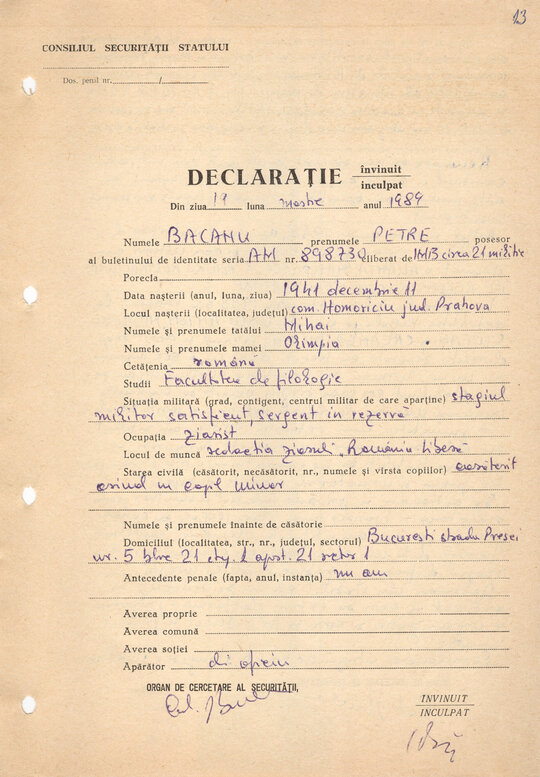 13
CONSILIUL SECURITĂȚII STATULUI
Dos. penal nr. /
DECLARAȚIE învinuit
inculpat
Din ziua 17 luna martie anul 1989
Numele BACANU prenumele PETRE posesor
al buletinului de identitate seria AM nr. 898730 eliberat de IMB circa 21 miliție
Porecla
Data nașterii (anul, luna, ziua) 1941 decembrie 11
Locul nașterii (localitatea, județul) com. Homoriciu jud. Prahova
Numele și prenumele tatălui Mihai
Numele și prenumele mamei Olimpia
Cetățenia română
Studii Facultatea de filologie
Situația militară (grad, contigent, centrul militar de care aparține) stagiul
militar satisfăcut, sergent în rezervă
Ocupația ziarist
Locul de muncă redacția ziarului "România liberă
Starea civilă (căsătorit, necăsătorit, nr., numele și vîrsta copiilor) căsătorit
avînd un copil minor
Numele și prenumele înainte de căsătorie
Domiciliul (localitatea, str., nr., județul, sectorul) București strada Presei
nr. 5 bloc 21 etj. 1 apart. 21 sector 1
Antecedente penale (fapta, anul, instanța) nu am
Averea proprie
Averea comună
Averea soției
Apărător din oficiu
ORGAN DE CERCETARE AL SECURITĂȚII,
INVINUIT
INCULPAT